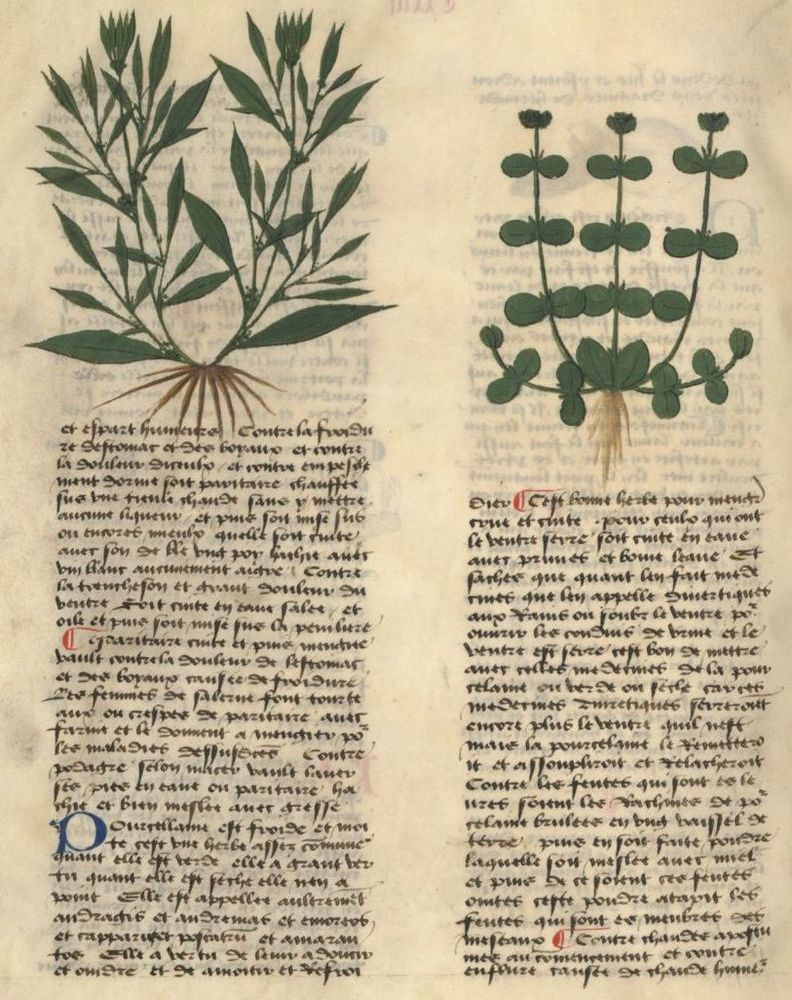 et espart humeurs Contre la froidu
re destomac et des boyaux et contre
la douleur et contre empesche
ment dorine soit paritaire chauffee
sus une tieule chaude sans y mettre
aucune liqueur et puis soit mise sus
ou encores mieulx quelle soit cuite
avec son de ble ung poy avec
vin blanc aucunement aigre Contre
la trencheson et grant douleur du
ventre soit cuite en eaue salee et
oile et puis soit mise sus la penilliere
Paritaire cuite et puis mengiee
vault contre la douleur de lestomac
et des boyaux causee de froidure
Les femmes de salerne font tourte
aux ou crespes de paritaire avec
farine et le donnent a mengier por
les maladies dessusdictes Contre
podagre selon macer vault laver
ses pies en eaue ou paritaire ha
chie et bien meslee avec gresse
Pourcellaine est froide et moi
te cest une herbe assez commune
quant elle est verde elle a grant ver
tu quant elle est seche elle nen a
point Elle est appellee aultrement
andragis et andremas et
et et amaran
tos Elle a vertu de leur adoucir
et oindre et de amoitir et Refroi
dier Cest bonne herbe pour mengier
crue et cuite pour ceulx qui ont
le ventre serre soit cuite en eaue
avec prunes et boive leaue Et
saches que quant len fait mede
cines que len appelle diuretiques
aux Rains ou soubz le ventre por
ouvrir les conduis de urine et le
ventre est serre cest bon de mettre
avec celles medecines de la pour
celaine ou verde ou seche car ces
medecines diuretiques serreroient
encore plus le ventre quil nest
mais la pourcelaine le Remettero
it et assouplirot et Relacheroit
Contre les fentes qui sont es le
vres soient les Rachines de por
celaine brulees en ung vaissel de
terre puis en soit faite pouldre
laquelle soit meslee avec miel
et puis de ce soient ces fentes
ointes ceste poudre les
fentes qui sont es menbres des
meseaux Contre chaudes apostu
mes au comencement et contre
enflure causee de chaude humeur